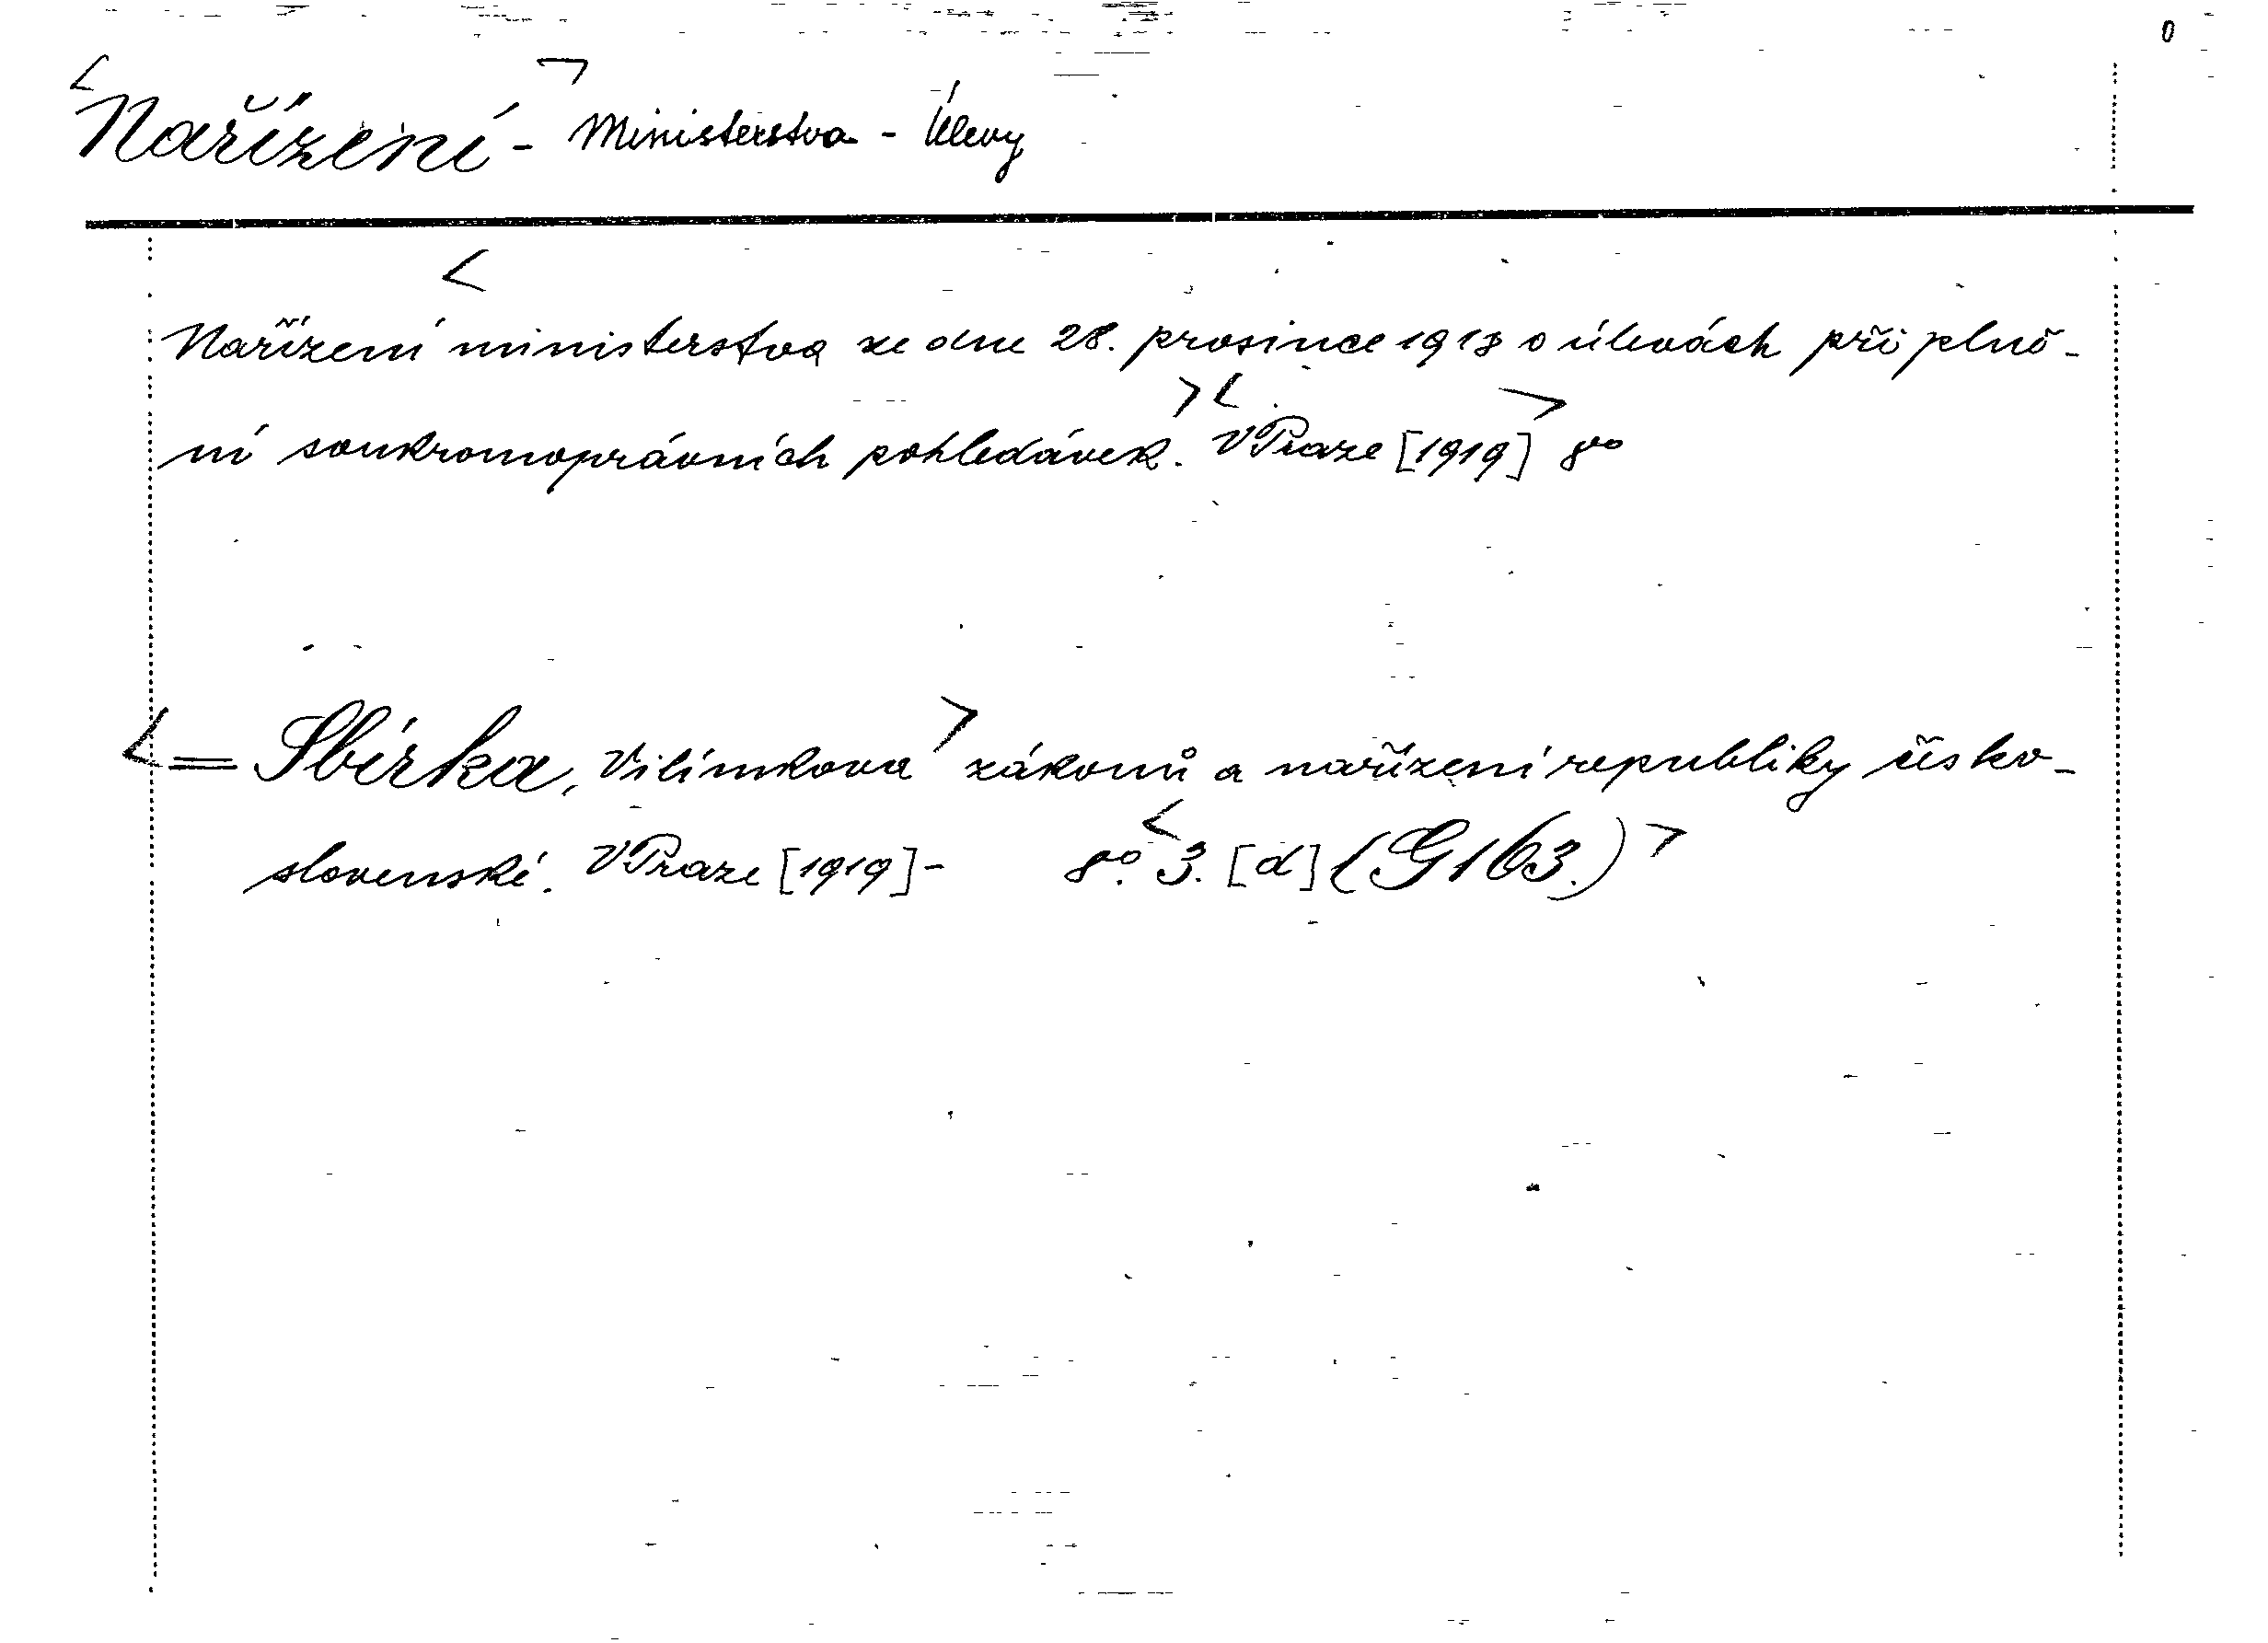 Nařízení - Ministerstva - Úlevy
Nařízení ministerstva ze dne 28. prosince 1918 o úlevách při plně-
ní soukromoprávních pohledávek. V Praze [1919] 8º
= Sbírka, Vilímkova zákonů a nařízení republiky česko-
slovenské. V Praze [1919]- 8º. 3. [d] (G 163.)